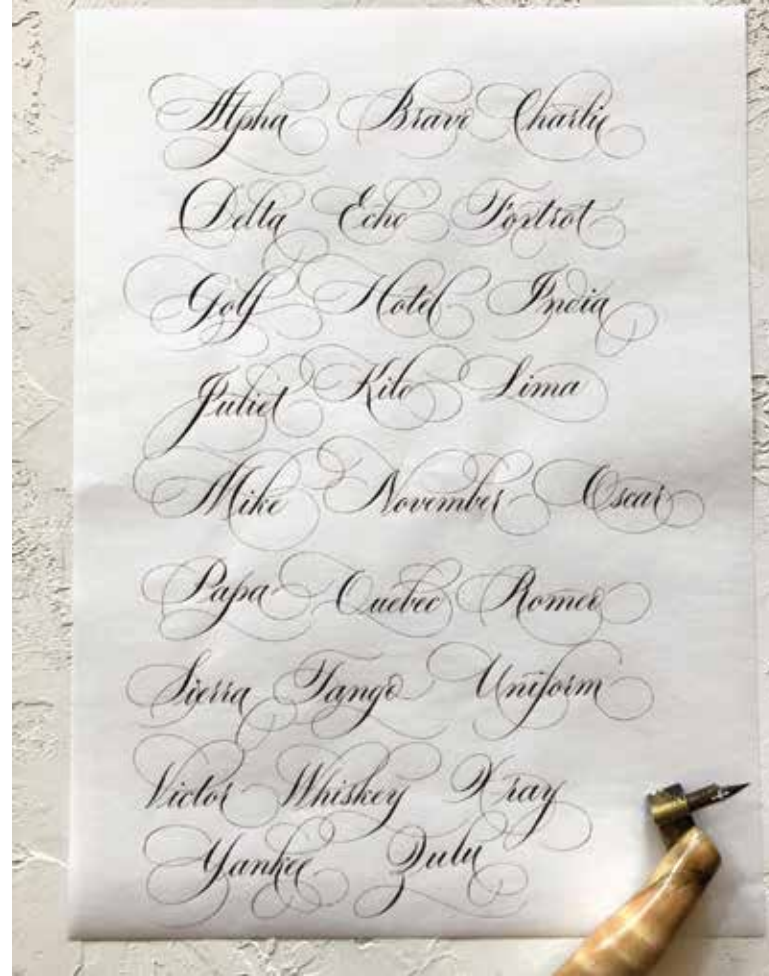 Alpha Bravo Charlie
Delta Echo Foxtrot
Golf Hotel India
Juliet Kilo Lima
Mike November Oscar
Papa Quebec Romeo
Sierra Tango Uniform
Victor Whiskey X ray
Yankee Zulu